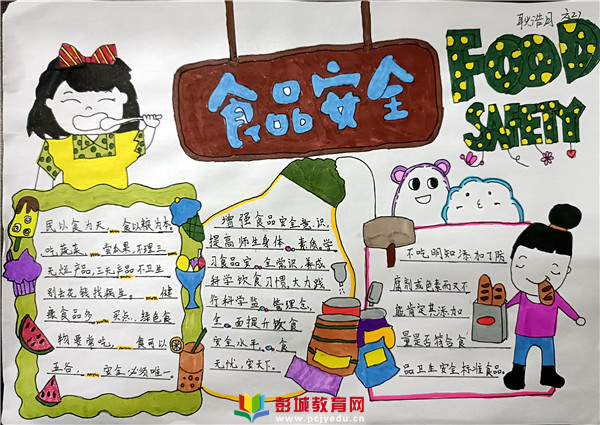 耿浩月 六(2)
食品安全
FOOD
SAFETY
民以食为天，食以粮为本。
吃蔬菜，尝瓜果，不理三
无烂产品，三无产品不卫生
别去花钱找病生。健
康食品多买点，绿色食
物要常吃，食可以
五谷，安全必须唯一。
增强食品安全意识，
提高师生身体素练，学
习食品安全常识，养成
科学饮食习惯，大力践
行科学监管理念，
全面提升饮食
安全水平，食
无忧，安天下。
不吃明知添加了防
腐剂或色素而又不
能肯定其添加
量是否符合食
品卫生安全标准食品。
彭城教育网
www.pcjyedu.cn